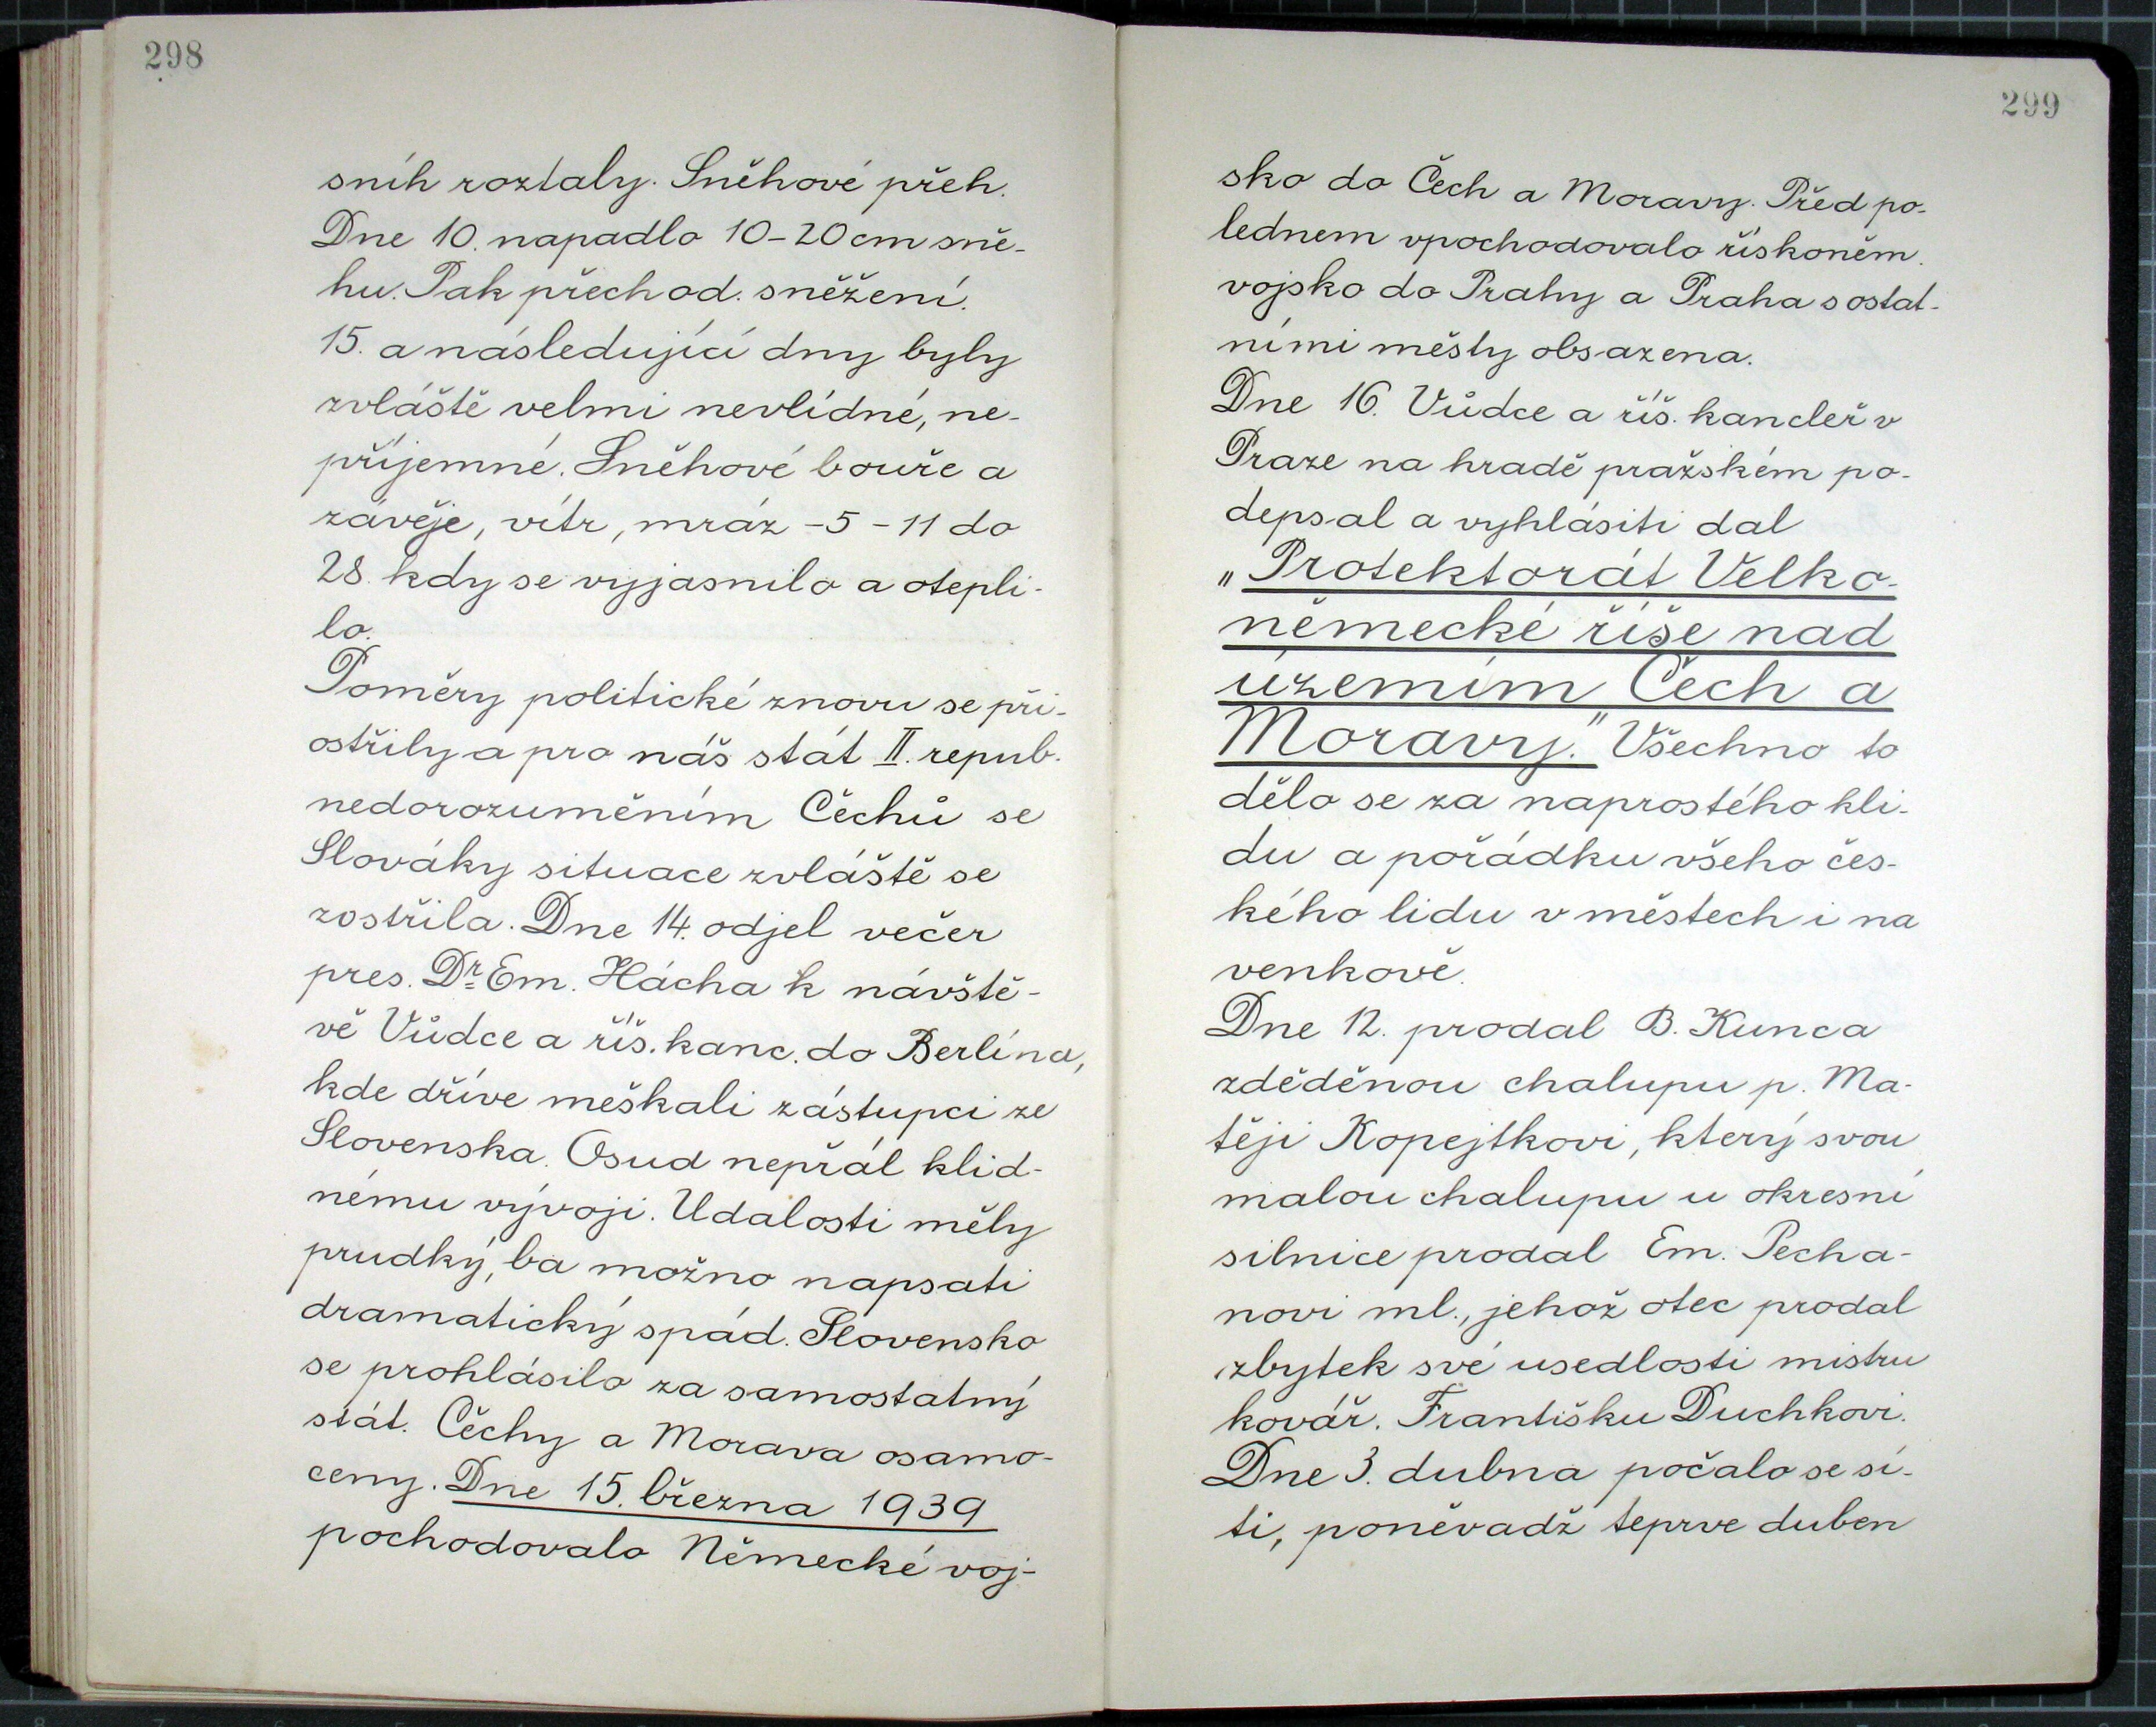 298
sníh roztaly. Sněhové přeh.
Dne 10. napadlo 10-20 cm sně-
hu. Pak přechod. sněžení.
15. a následující dny byly
zvláště velmi nevlídné, ne-
příjemné. Sněhové bouře a
závěje, vítr, mráz -5 -11 do
28. kdy se vyjasnilo a otepli-
lo.
Poměry politické znovu se při-
ostřily a pro náš stát II. repub.
nedorozuměním Čechů se
Slováky situace zvláště se
zostřila. Dne 14. odjel večer
pres. Dr. Em. Hácha k návště-
vě Vůdce a říš. kanc. do Berlína,
kde dříve meškali zástupci ze
Slovenska. Osud nepřál klid-
nému vývoji. Udalosti měly
prudký, ba možno napsati
dramatický spád. Slovensko
se prohlásilo za samostatný
stát. Čechy a Morava osamo-
ceny. Dne 15. března 1939
pochodovalo Německé voj-
299
sko do Čech a Moravy. Před po-
lednem vpochodovalo řískoněm.
vojsko do Prahy a Praha s ostat-
ními městy obsazena.
Dne 16. Vůdce a říš. kancleř v
Praze na hradě pražském po-
depsal a vyhlásiti dal
„Protektorát Velko-
německé říše nad
územím Čech a
Moravy." Všechno to
dělo se za naprostého kli-
du a pořádku všeho čes-
kého lidu v městech i na
venkově.
Dne 12. prodal B. Kunca
zděděnou chalupu p. Ma-
těji Kopejtkovi, který svou
malou chalupu u okresní
silnice prodal Em. Pecha-
novi ml., jehož otec prodal
zbytek své usedlosti mistru
kovář. Františku Duchkovi.
Dne 3. dubna počalo se sí-
ti, poněvadž teprve duben